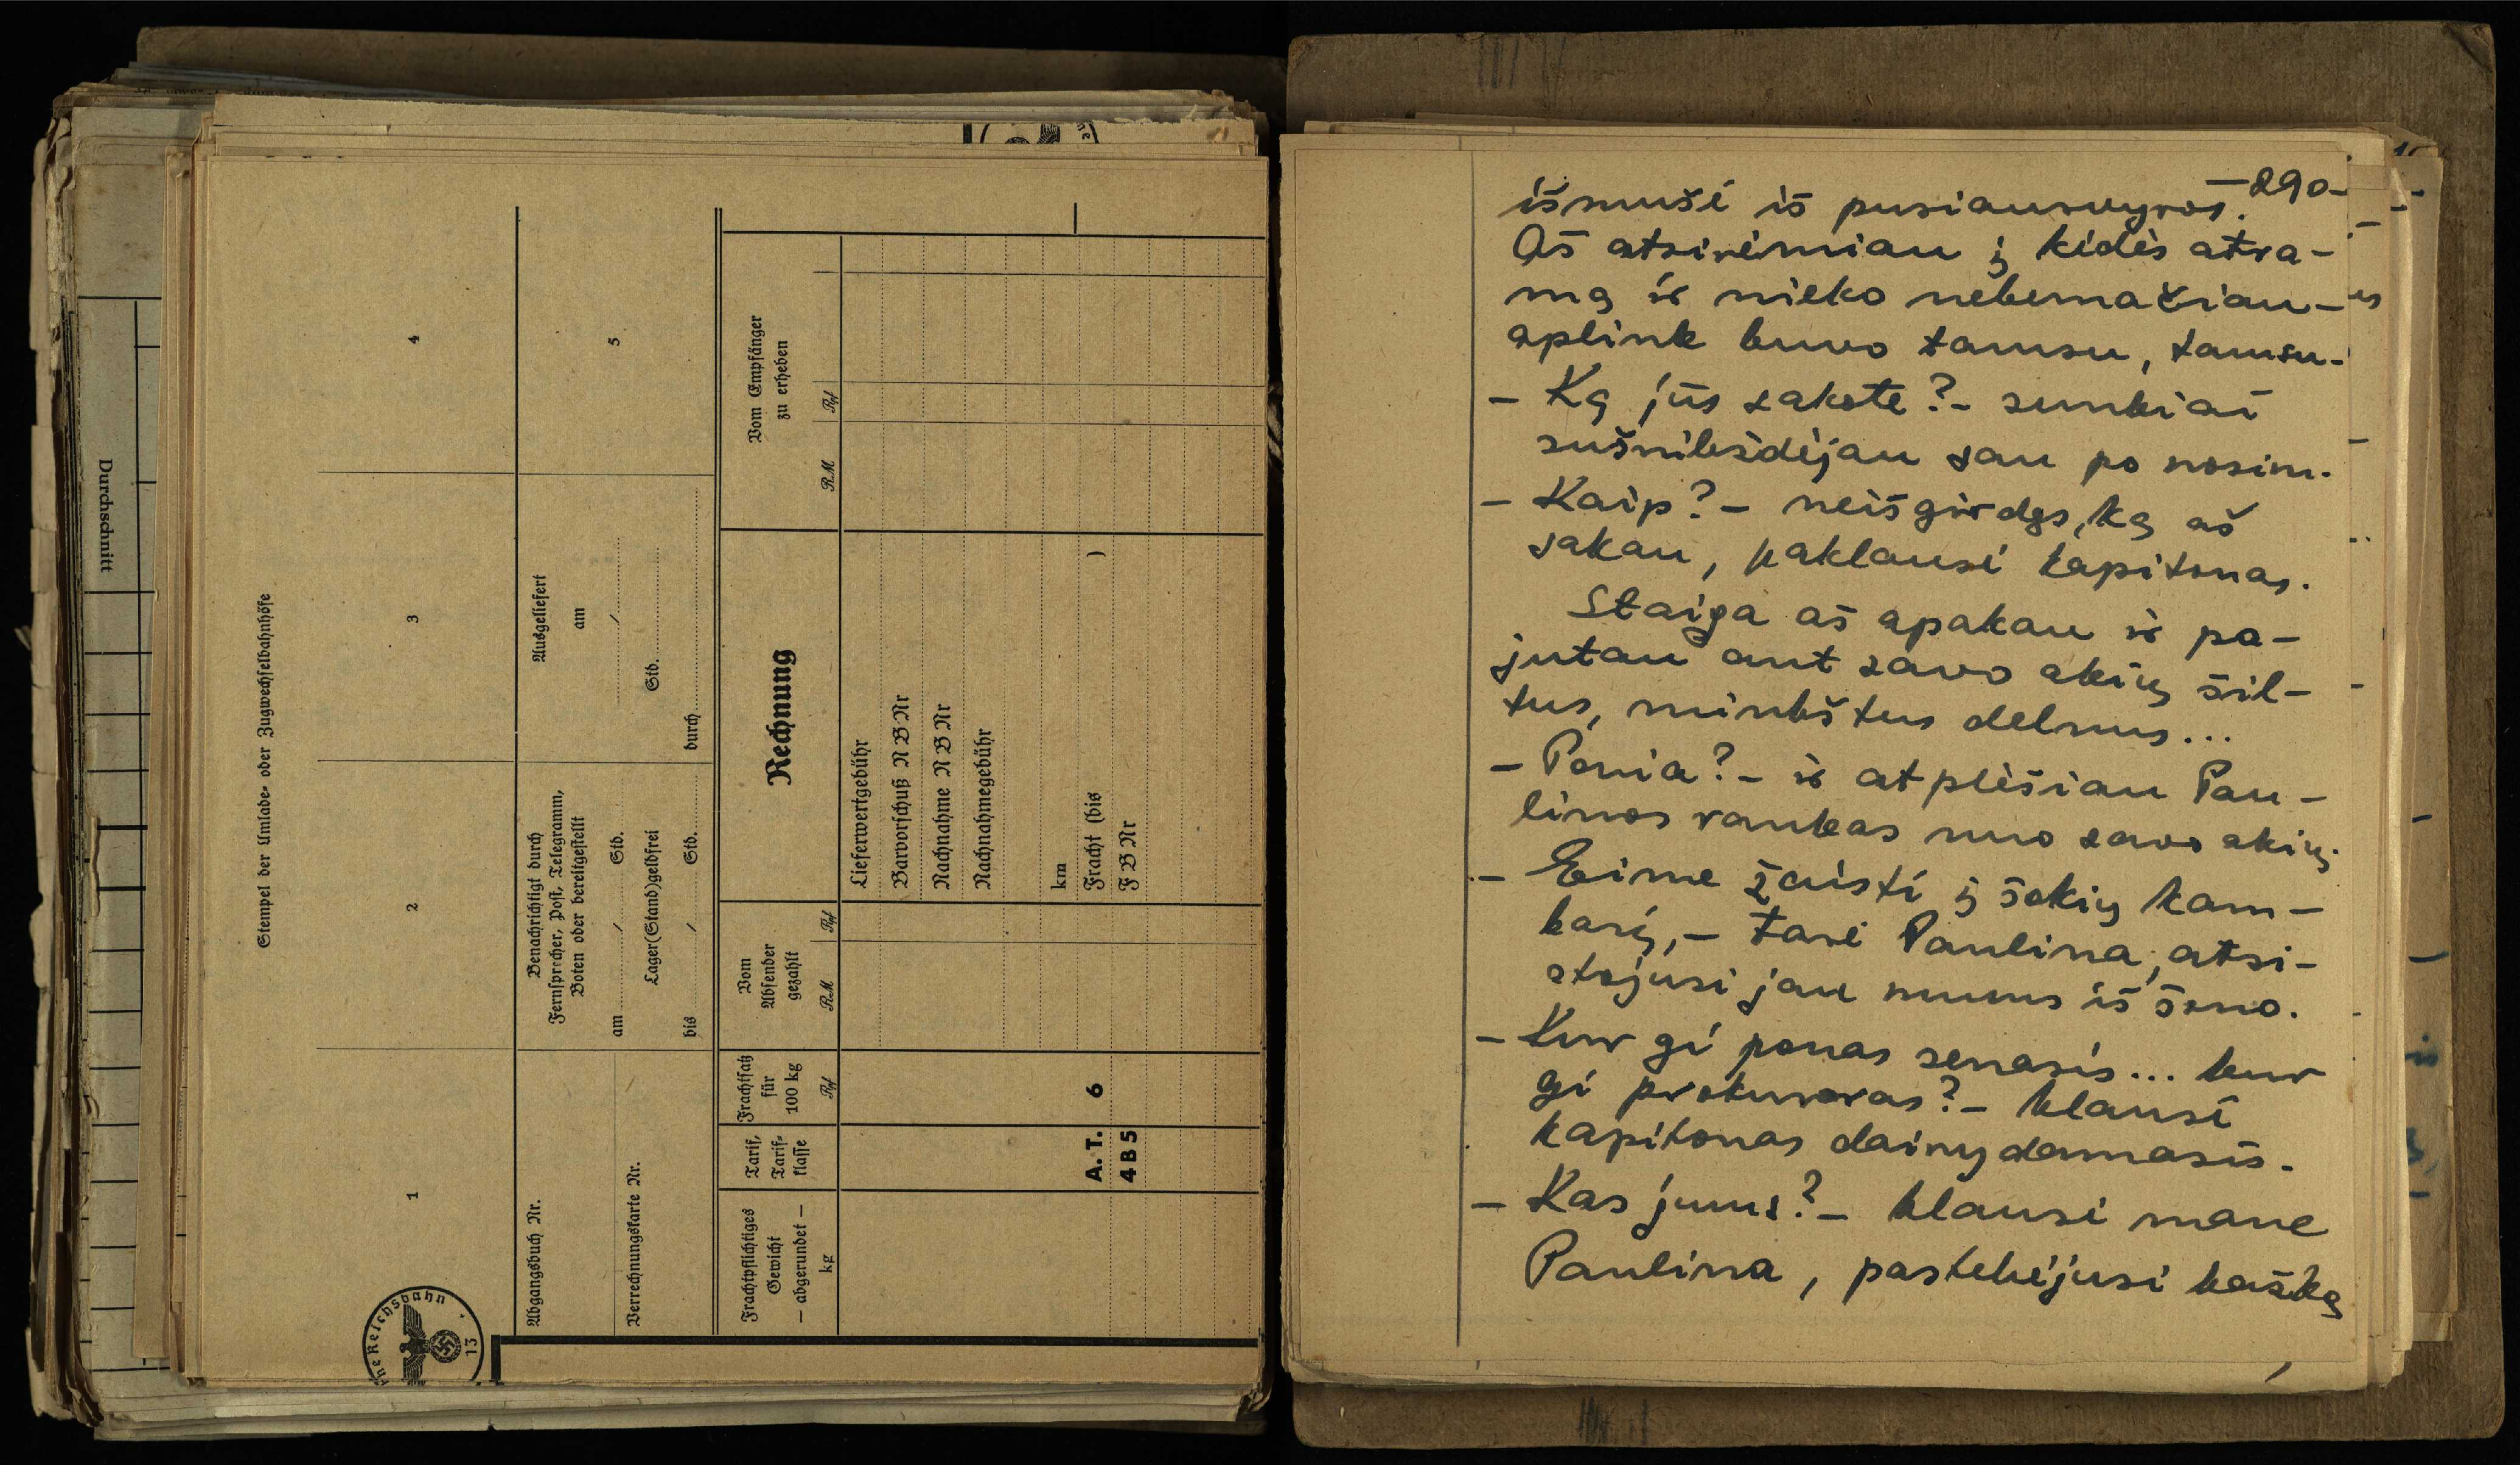 Durchschnitt
Stempel der Umlade- oder Zugwechselbahnhöfe
1
2
3
4
Abgangsbuch Nr.
Verrechnungskarte Nr.
Benachrichtigt durch
Fernsprecher, Post, Telegramm,
Boten oder bereitgestellt
am / Std.
Lager(Stand)geldfrei
bis / Std.
Ausgeliefert
am
/
Std.
durch
5
Frachtpflichtiges
Gewicht
— abgerundet —
kg
Tarif,
Tarif-
klasse
Frachtsatz
für
100 kg
Rpf
Vom
Absender
gezahlt
RM Rpf
Rechnung
Vom Empfänger
zu erheben
RM Rpf
Lieferwertgebühr
Barvorschuß N B Nr
Nachnahme N B Nr
Nachnahmegebühr
km
A. T. 6 Fracht (bis )
4 B 5 F B Nr
ne Reichsbahn
13
—290—
išmušė iš pusiausvyros.
Aš atsirėmiau į kėdės atra-
mą ir nieko nebemačiau—
aplink buvo tamsu, tamsu.
— Ką jūs sakote? — sunkiai
sušnibždėjau sau po nosim.
— Kaip? — neišgirdęs, ką aš
sakau, paklausė kapitonas.
Staiga aš apakau ir pa-
jutau ant savo akių šil-
tus, minkštus delnus...
— Ponia? — ir atplėšiau Pau-
linos rankas nuo savo akių.
— Eime žaisti į šokių kam-
barį, — tarė Paulina, atsi-
stojusi jau mums iš šono.
— Kur gi ponas senasis... kur
gi prokuroras? — klausė
kapitonas dairydamasis.
— Kas jums? — klausė mane
Paulina, pastebėjusi kažką